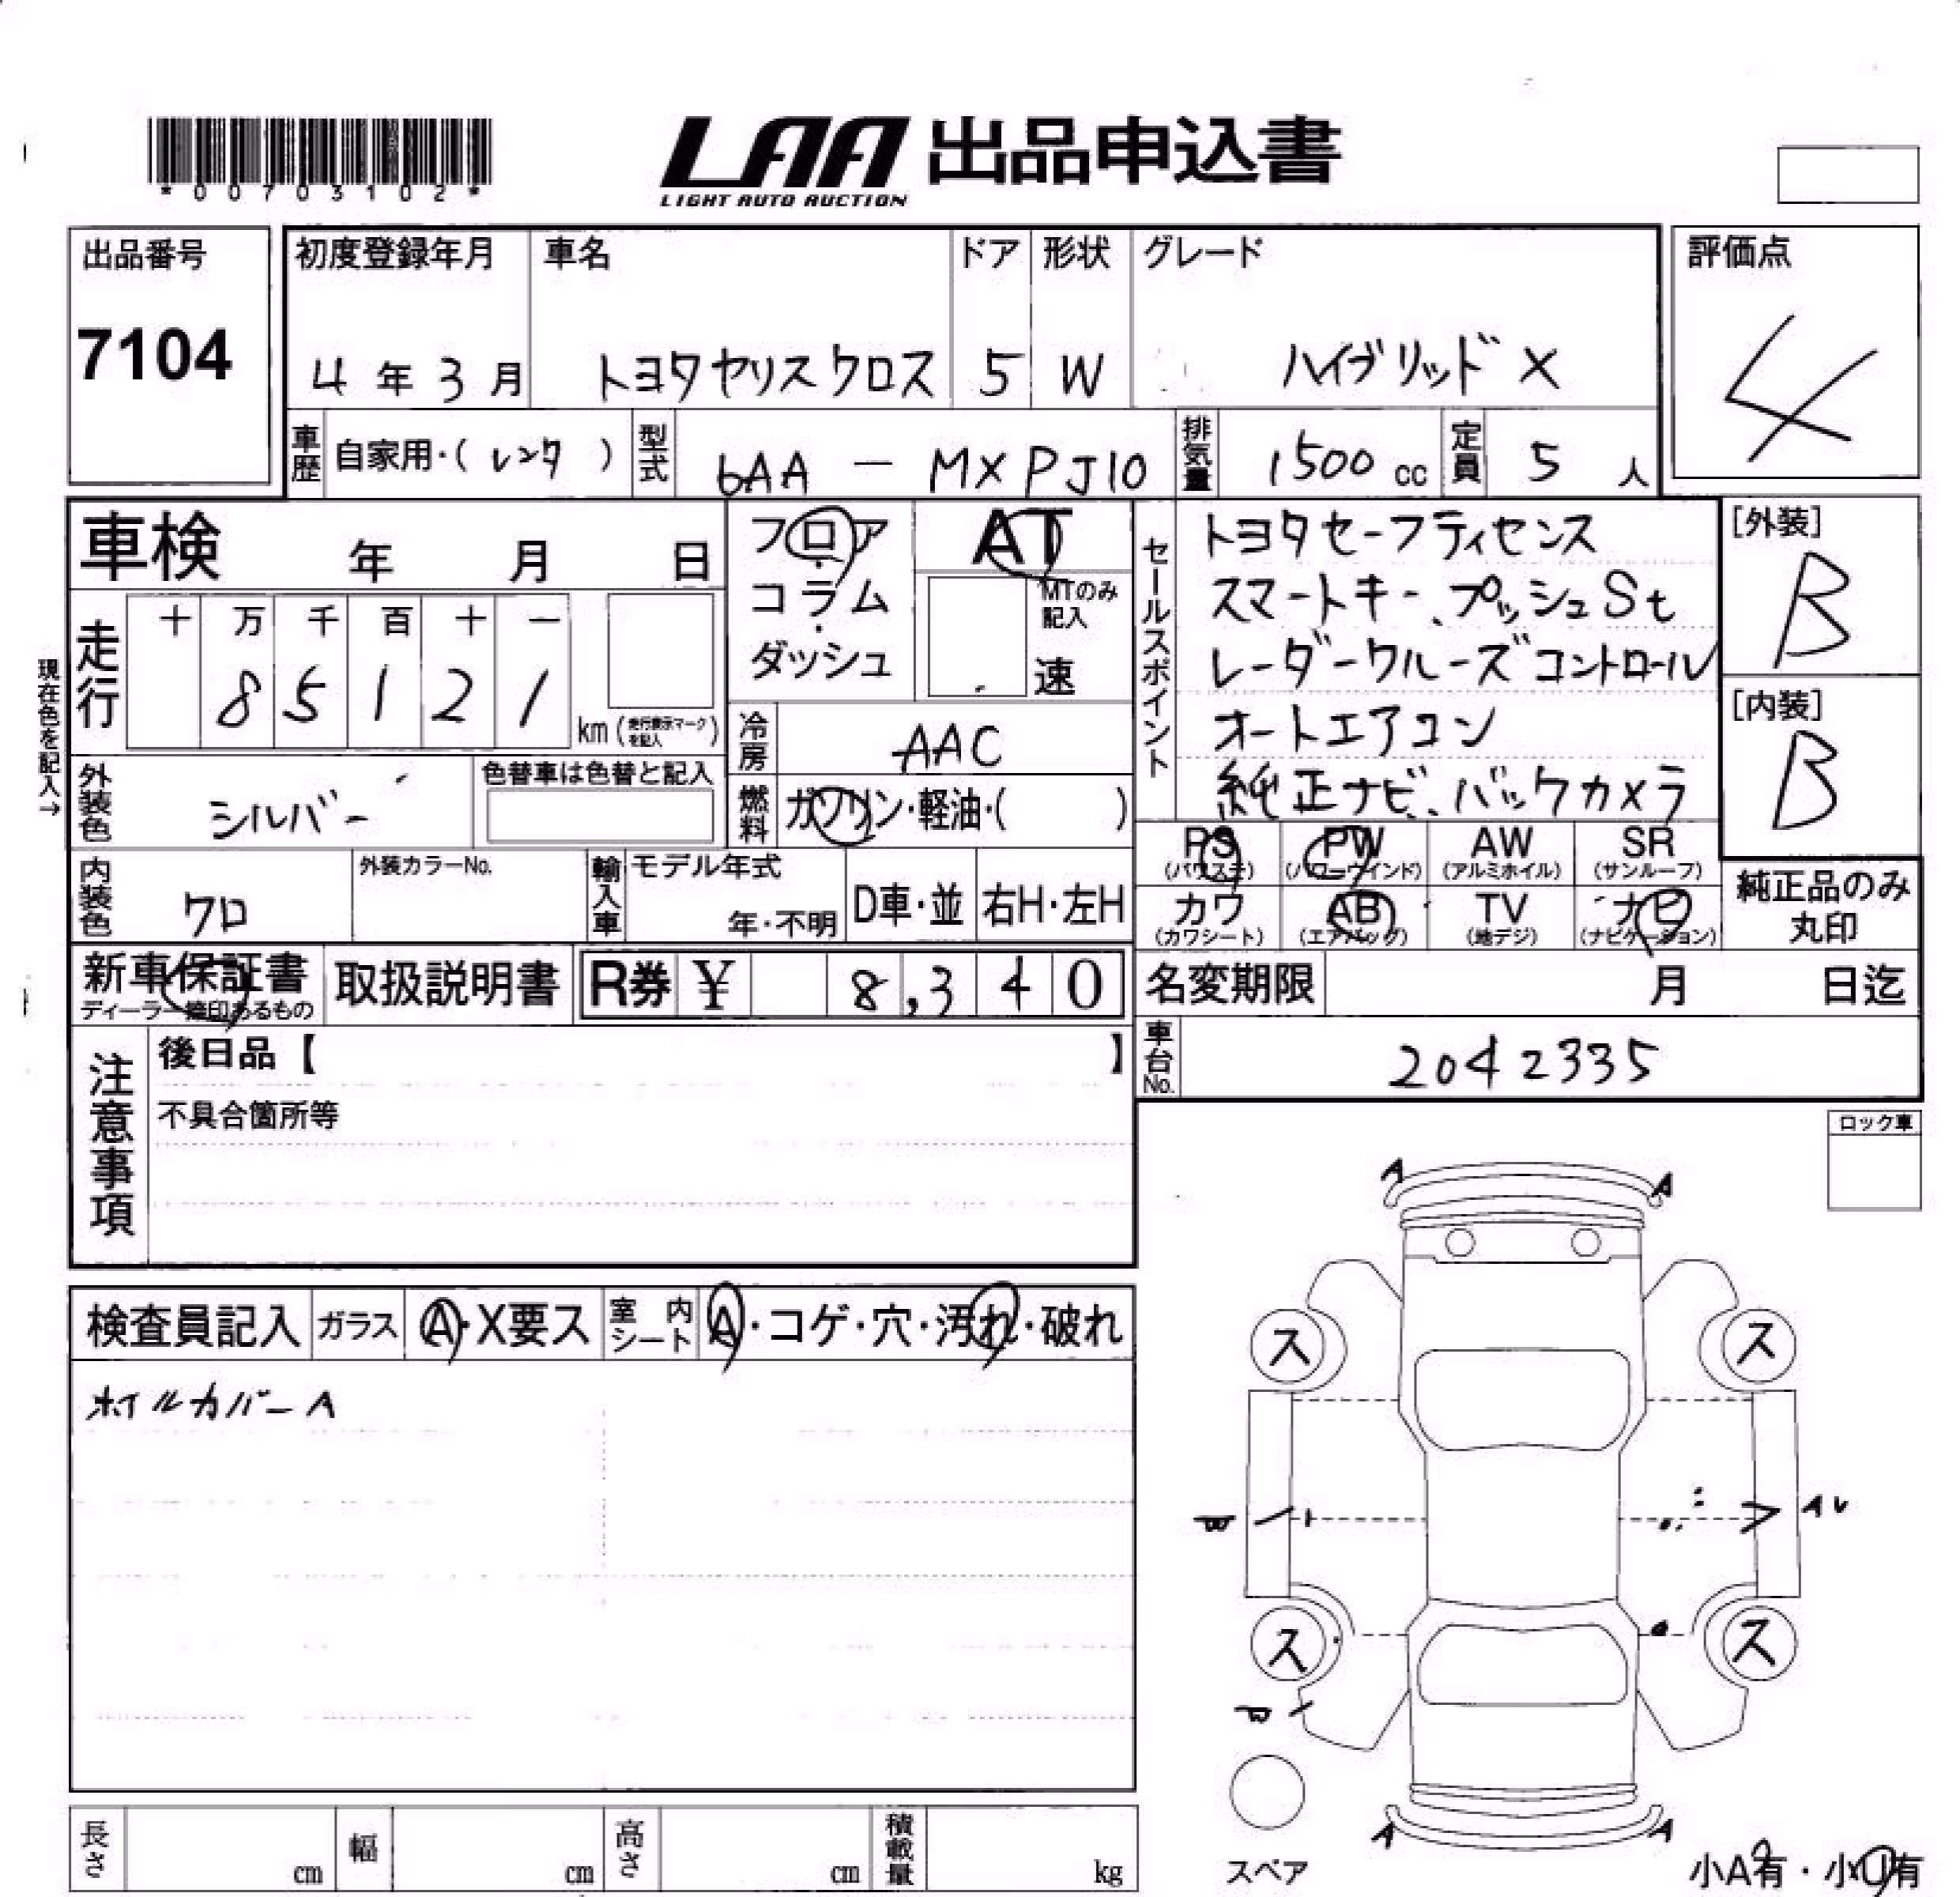 *00703102*
LAA 出品申込書
LIGHT AUTO AUCTION
出品番号
7104
初度登録年月
4年3月
車名
トヨタヤリスクロス
ドア
5
形状
W
グレード
ハイブリッドX
評価点
4
車歴
自家用・(レンタ)
型式
6AA - MXPJ10
排気量
1500cc
定員
5人
車検 年 月 日
現在色を記入→
走行
十 万 千 百 十 一
8 5 1 2 1
km(走行表示マークを記入)
フロア
・
コラム
・
ダッシュ
AT
MTのみ
記入
速
冷房
AAC
燃料
ガソリン・軽油・( )
外装色
シルバー
色替車は色替と記入
内装色
クロ
外装カラーNo.
輸入車
モデル年式
年・不明
D車・並
右H・左H
セールスポイント
トヨタセーフティセンス
スマートキー、プッシュSt
レーダークルーズコントロール
オートエアコン
純正ナビ、バックカメラ
[外装]
B
[内装]
B
PS
(パワステ)
PW
(パワーウインド)
AW
(アルミホイル)
SR
(サンルーフ)
カワ
(カワシート)
AB
(エアバッグ)
TV
(地デジ)
ナビ
(ナビゲーション)
純正品のみ
丸印
新車保証書
ディーラー捺印あるもの
取扱説明書
R券 ¥ 8,340
名変期限 月 日迄
車台No.
2042335
注意事項
後日品【 】
不具合箇所等
ロック車
検査員記入
ガラス
A・X要ス
室内
シート
A・コゲ・穴・汚れ・破れ
ホイルカバーA
A
A
ス
ス
AU
ス
ス
A
A
スペア
小A有・小U有
長さ
cm
幅
cm
高さ
cm
積載量
kg